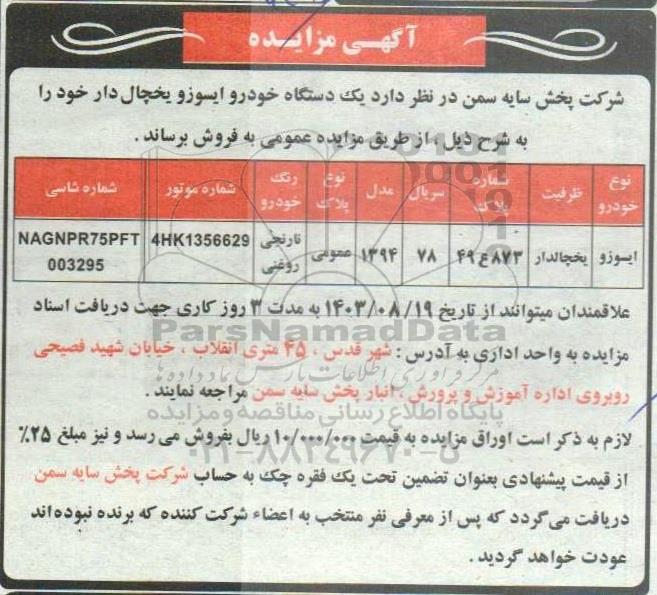 آگهـی مزایـده
شرکت پخش سایه سمن در نظر دارد یک دستگاه خودرو ایسوزو یخچال دار خود را
به شرح ذیل ، از طریق مزایده عمومی به فروش برساند .
نوع خودرو ظرفیت شماره پلاک سریال مدل نوع پلاک رنگ خودرو شماره موتور شماره شاسی
ایسوزو یخچالدار ۸۷۳ع۴۹ ۷۸ ۱۳۹۴ عمومی نارنجی روغنی 4HK1356629 NAGNPR75PFT 003295
علاقمندان میتوانند از تاریخ ۱۴۰۳/۰۸/۱۹ به مدت ۳ روز کاری جهت دریافت اسناد
ParsNamadData
مزایده به واحد اداری به آدرس : شهر قدس ، ۴۵ متری انقلاب ، خیابان شهید فصیحی
مرکز فرآوری اطلاعات پارس نماد داده ها
روبروی اداره آموزش و پرورش ، انبار پخش سایه سمن مراجعه نمایند .
پایگاه اطلاع رسانی مناقصه و مزایده
لازم به ذکر است اوراق مزایده به قیمت ۱۰/۰۰۰/۰۰۰ ریال بفروش می رسد و نیز مبلغ ۲۵٪
۰۲۱-۸۸۳۴۹۶۷۰-۵
از قیمت پیشنهادی بعنوان تضمین تحت یک فقره چک به حساب شرکت پخش سایه سمن
دریافت می‌گردد که پس از معرفی نفر منتخب به اعضاء شرکت کننده که برنده نبوده‌اند
عودت خواهد گردید .